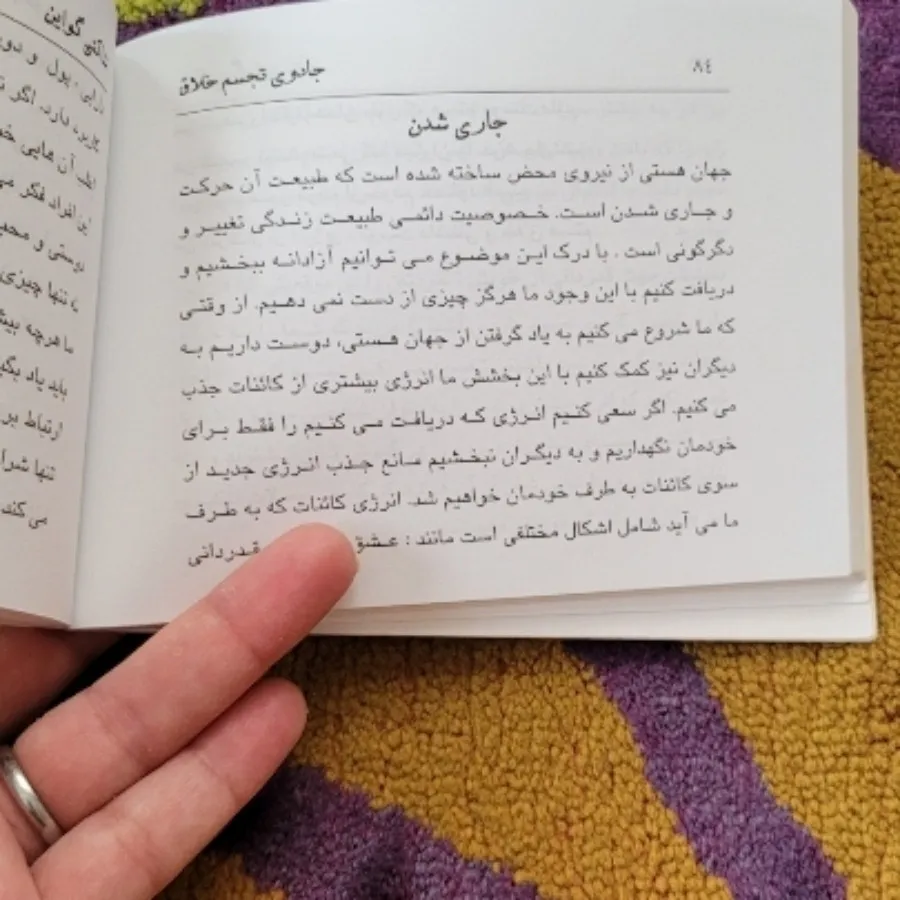 ۸۴ جادوی تجسم خلاق
جاری شدن
جهان هستی از نیروی محض ساخته شده است که طبیعت آن حرکت
و جاری شدن است. خصوصیت دائمی طبیعت زندگی تغییر و
دگرگونی است . با درک این موضوع می توانیم آزادانه ببخشیم و
دریافت کنیم با این وجود ما هرگز چیزی از دست نمی دهیم. از وقتی
که ما شروع می کنیم به یاد گرفتن از جهان هستی، دوست داریم به
دیگران نیز کمک کنیم با این بخشش ما انرژی بیشتری از کائنات جذب
می کنیم. اگر سعی کنیم انرژی که دریافت می کنیم را فقط برای
خودمان نگهداریم و به دیگران نبخشیم مانع جذب انرژی جدید از
سوی کائنات به طرف خودمان خواهیم شد. انرژی کائنات که به طرف
ما می آید شامل اشکال مختلفی است مانند : عشق قدردانی
گواین
دارایی ، پول و
دارد. اگر
آن هایی
این افراد فکر می
دوستی و
تنها چیزی
ما هرچه
باید یاد
ارتباط بر
تنها
می کند